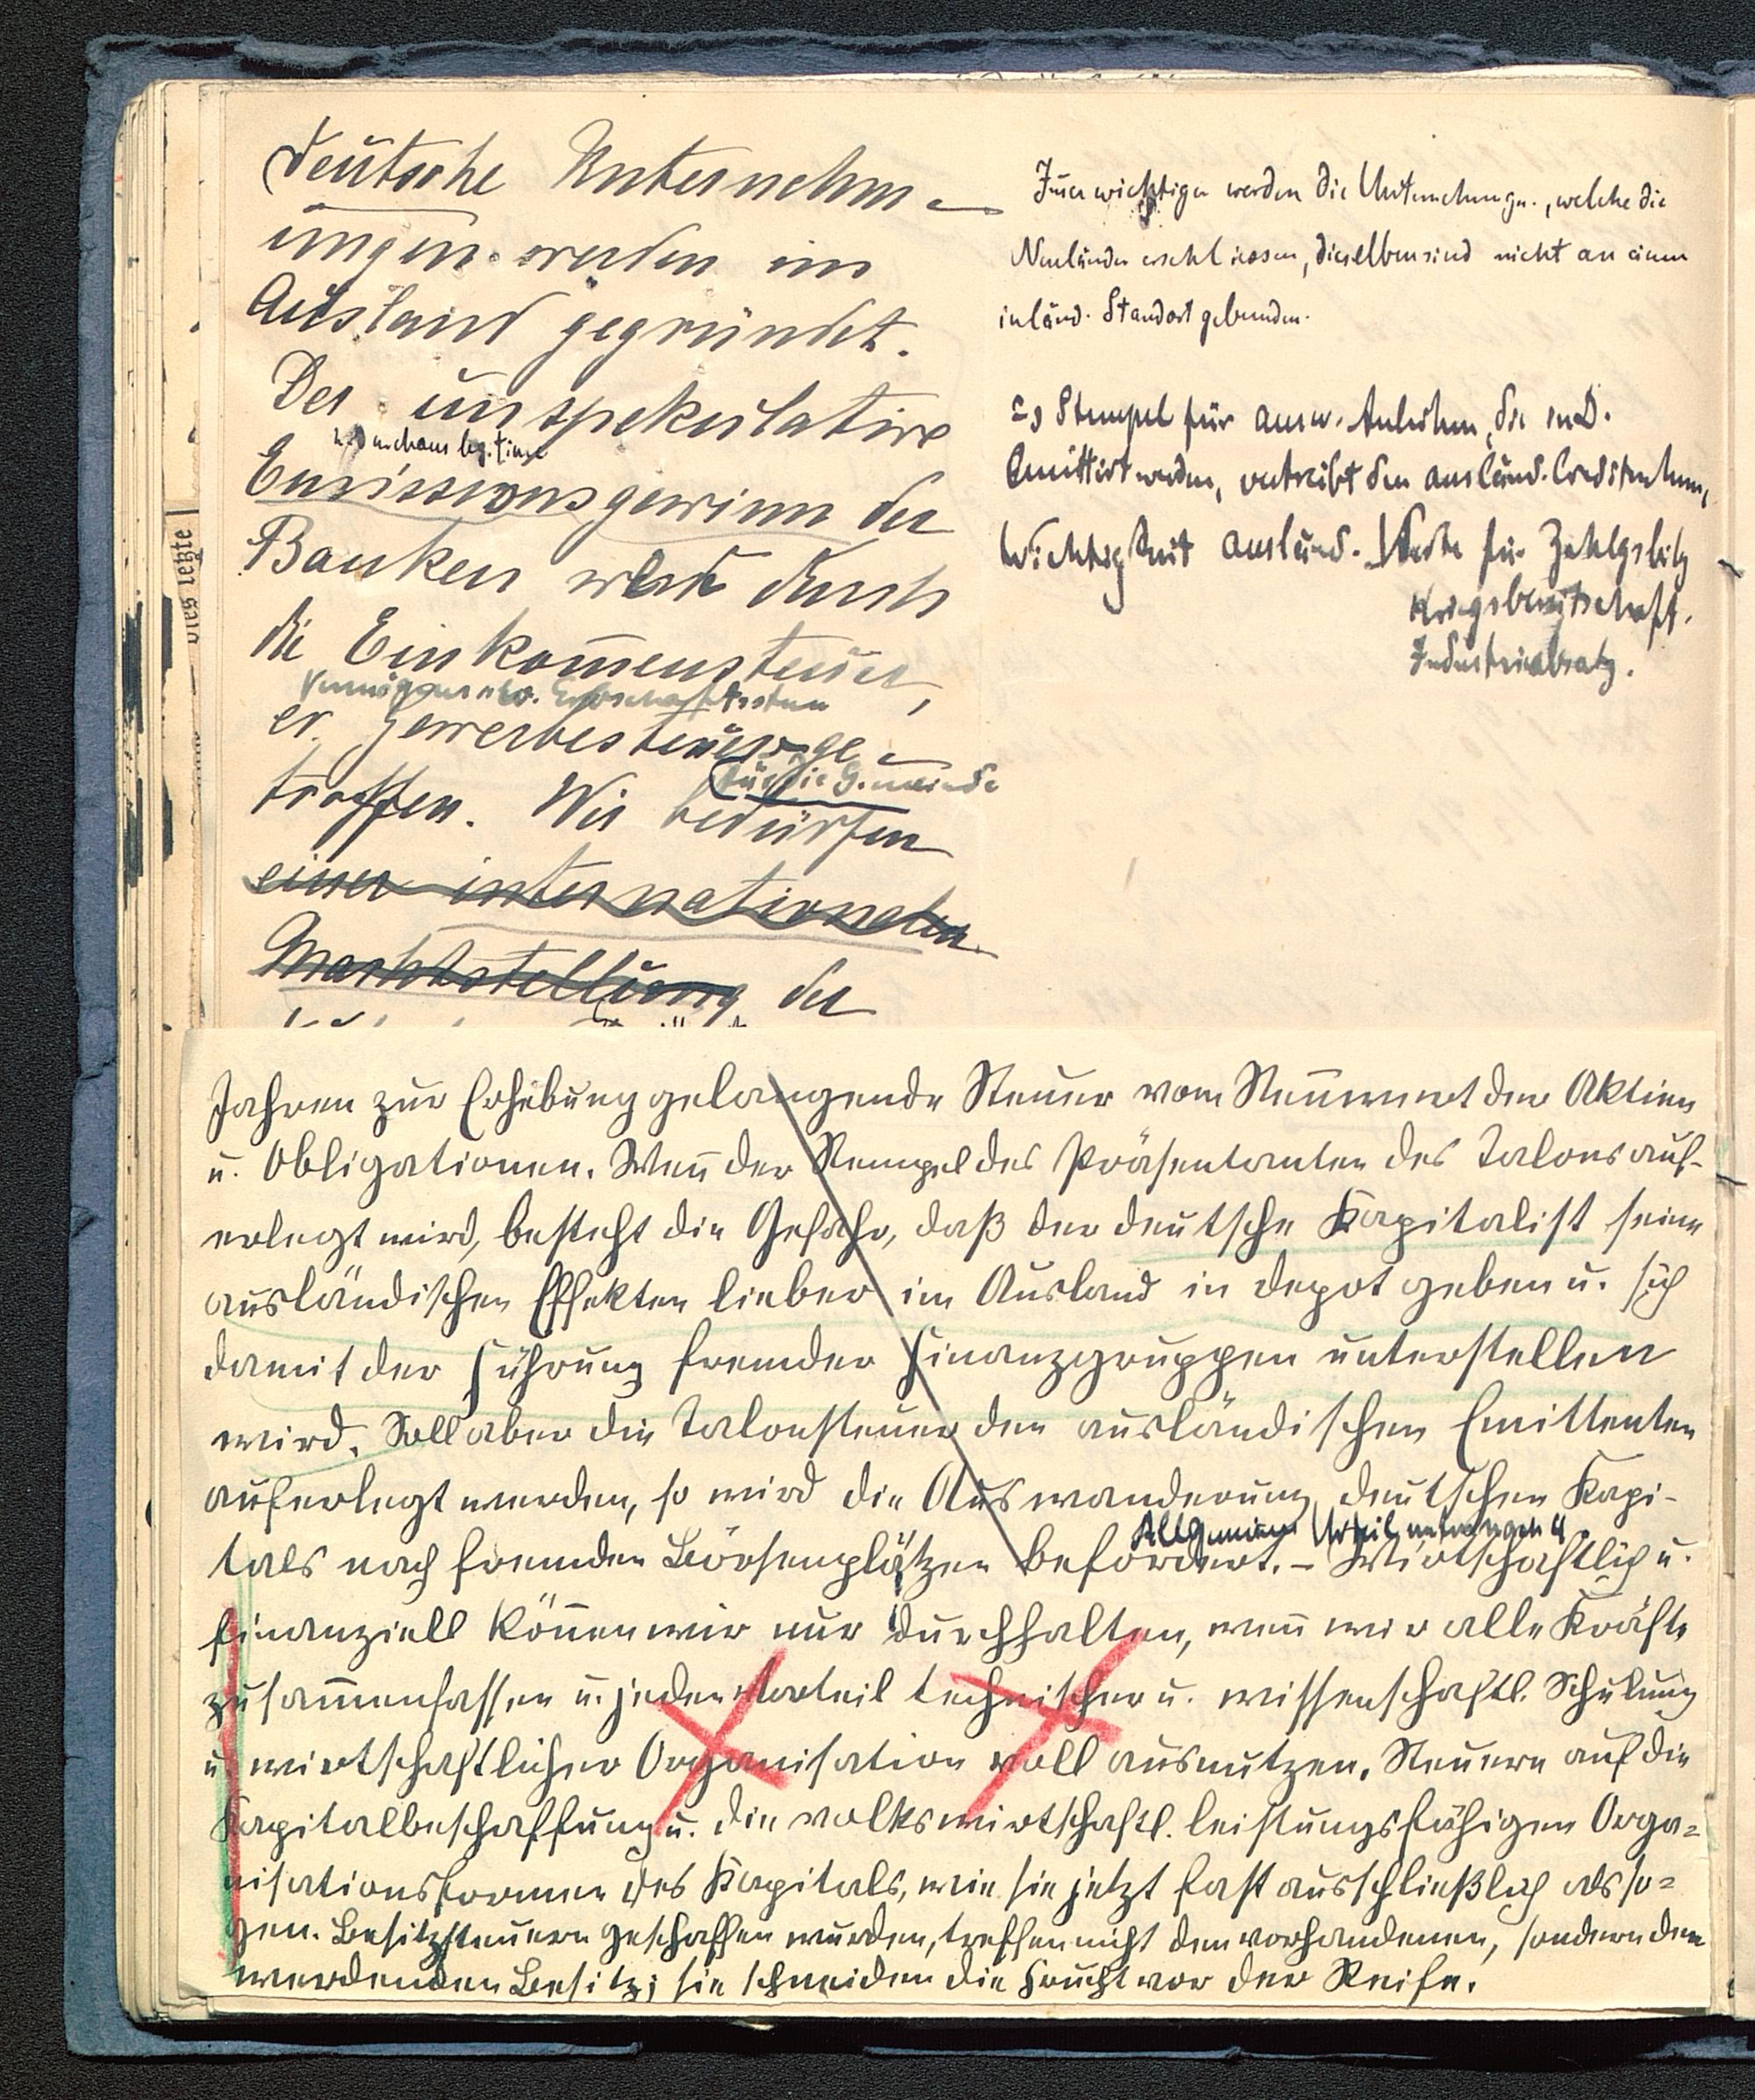 deutsche Unternehm-
ungen werden im
Ausland gegründet.
Der unspekulative
u. durchaus legitime
Emissionsgewinn der
Banken wird durch
die Einkommensteuer,
Vermögens u. ev. Erbschaftssteuer
ev. Gewerbesteuer ge-
für die Gemeinde
troffen. Wir bedürfen
einer internationalen
Machtstellung der
Immer wichtiger werden die Unternehmgn., welche die
Neuländer erschliessen, dieselben sind nicht an einen
inländ. Standort gebunden.
Stempel für ausw. Anleihen, die in D.
Emittirt werden, vertreibt den ausländ. Creditnehmer,
Wichtigkeit ausländ. Werte für Zahlgsbilz
Kriegsbereitschaft.
Industrieabsatz.
dies letzte
Jahren zur Erhebung gelangende Steuer vom Nennwert der Aktien
u. Obligationen. Wenn der Stempel des Präsentanten des Talons auf-
erlegt wird, besteht die Gefahr, daß der deutsche Kapitalist seine
ausländischen Effekten lieber im Ausland in Depot geben u. sich
damit der Führung fremder Finanzgruppen unterstellen
wird. Soll aber die Talonsteuer den ausländischen Emittenten
auferlegt werden, so wird die Auswanderung deutschen Kapi-
Allgemeine
tals nach fremden Börsenplätzen befördert. – Wirtschaftlich u.
finanziell können wir nur durchhalten, wenn wir alle Kräfte
zusammenfassen u. jeden Vorteil technischer u. wissenschaftl. Schulung
u. wirtschaftlicher Organisation voll ausnutzen. Steuern auf die
Kapitalbeschaffung u. die volkswirtschaftl. leistungsfähigen Orga-
nisationsformen des Kapitals, wie sie jetzt fast ausschließlich als so-
gen. Besitzsteuern geschaffen wurden, treffen nicht den vorhandenen, sondern den
werdenden Besitz; sie schneiden die Frucht vor der Reife.